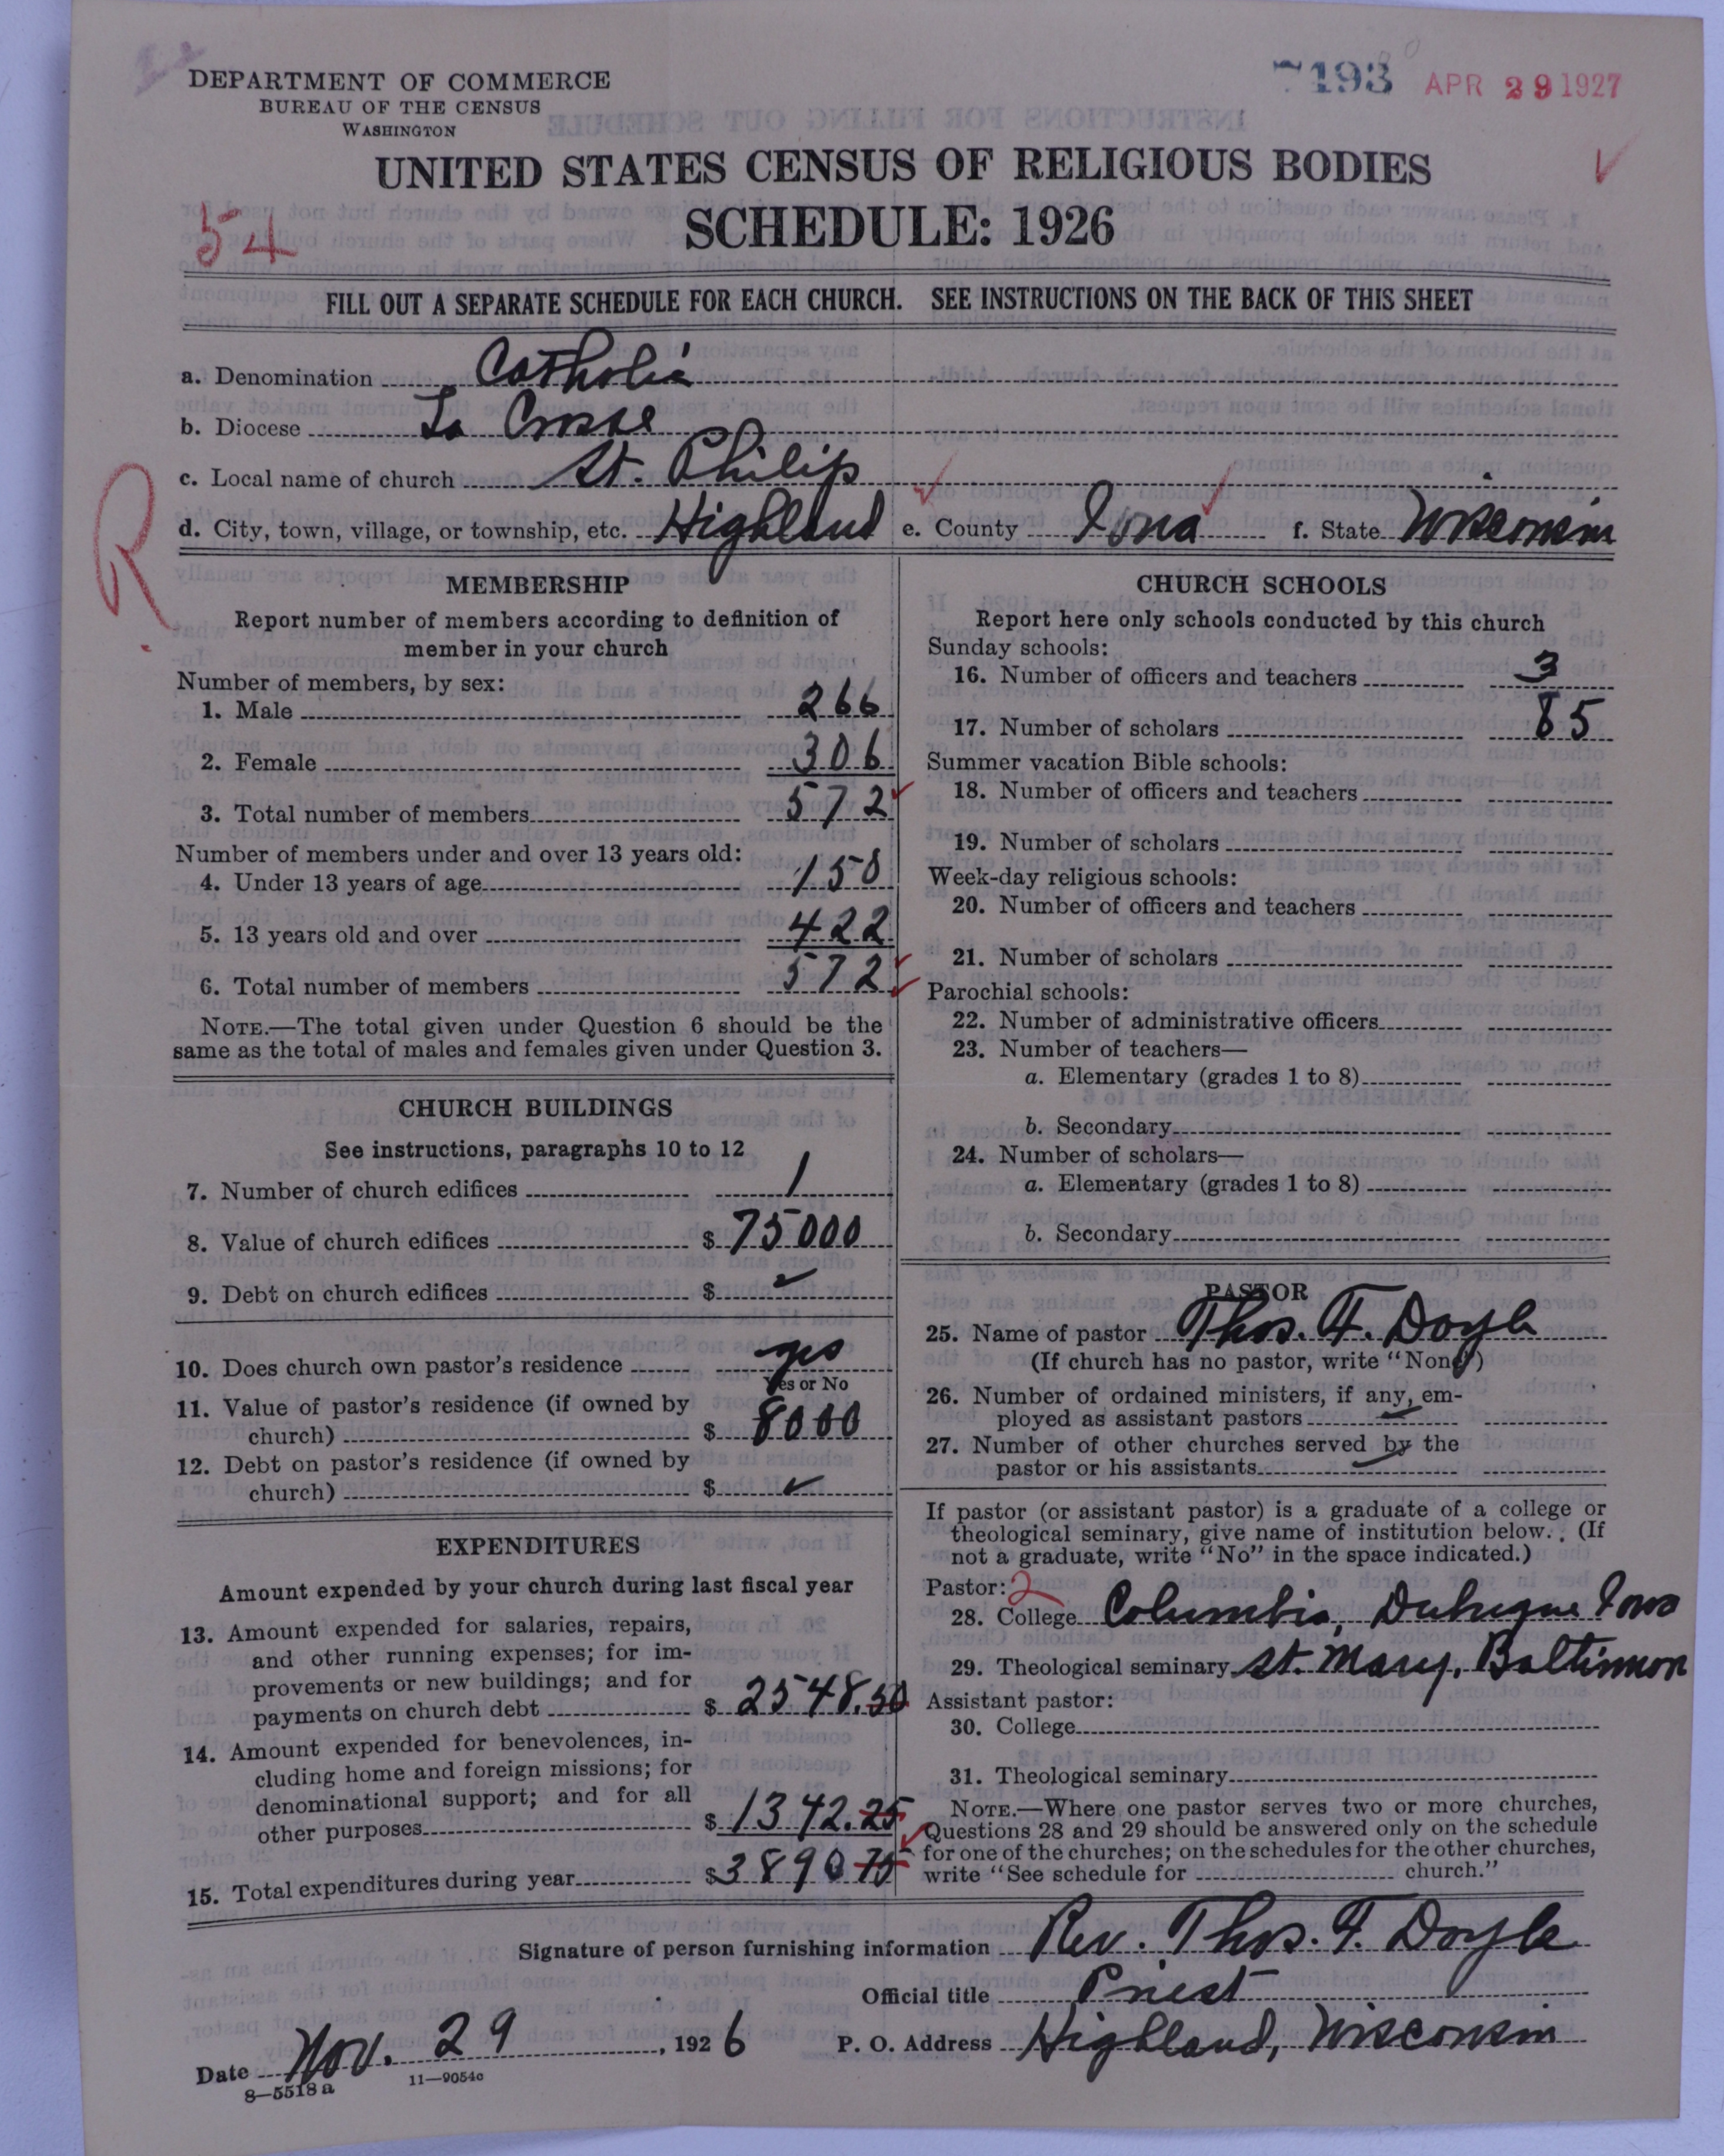 7193 APR 29 1927
DEPARTMENT OF COMMERCE
BUREAU OF THE CENSUS
WASHINGTON
UNITED STATES CENSUS OF RELIGIOUS BODIES
54
SCHEDULE: 1926
FILL OUT A SEPARATE SCHEDULE FOR EACH CHURCH. SEE INSTRUCTIONS ON THE BACK OF THIS SHEET
a. Denomination Catholic
b. Diocese La Crosse
c. Local name of church St. Philip
R
d. City, town, village, or township, etc. Highland e. County Iowa f. State Wisconsin
MEMBERSHIP
Report number of members according to definition of
member in your church
Number of members, by sex:
1. Male 266
2. Female 306
3. Total number of members 572
Number of members under and over 13 years old:
4. Under 13 years of age 150
5. 13 years old and over 422
6. Total number of members 572
NOTE.—The total given under Question 6 should be the
same as the total of males and females given under Question 3.
CHURCH BUILDINGS
See instructions, paragraphs 10 to 12
7. Number of church edifices 1
8. Value of church edifices $ 75000
9. Debt on church edifices $
10. Does church own pastor's residence yes
Yes or No
11. Value of pastor's residence (if owned by
church) $ 8000
12. Debt on pastor's residence (if owned by
church) $
EXPENDITURES
Amount expended by your church during last fiscal year
13. Amount expended for salaries, repairs,
and other running expenses; for im-
provements or new buildings; and for
payments on church debt $ 2548.50
14. Amount expended for benevolences, in-
cluding home and foreign missions; for
denominational support; and for all
other purposes $ 1342.25
15. Total expenditures during year $ 3890 75
CHURCH SCHOOLS
Report here only schools conducted by this church
Sunday schools:
16. Number of officers and teachers 3
17. Number of scholars 85
Summer vacation Bible schools:
18. Number of officers and teachers
19. Number of scholars
Week-day religious schools:
20. Number of officers and teachers
21. Number of scholars
Parochial schools:
22. Number of administrative officers
23. Number of teachers—
a. Elementary (grades 1 to 8)
b. Secondary
24. Number of scholars—
a. Elementary (grades 1 to 8)
b. Secondary
PASTOR
25. Name of pastor Thos. F. Doyle
(If church has no pastor, write "None")
26. Number of ordained ministers, if any, em-
ployed as assistant pastors
27. Number of other churches served by the
pastor or his assistants
If pastor (or assistant pastor) is a graduate of a college or
theological seminary, give name of institution below. (If
not a graduate, write "No" in the space indicated.)
Pastor: 2
28. College Columbia, Dubuque Iowa
29. Theological seminary St. Mary, Baltimore
Assistant pastor:
30. College
31. Theological seminary
NOTE.—Where one pastor serves two or more churches,
Questions 28 and 29 should be answered only on the schedule
for one of the churches; on the schedules for the other churches,
write "See schedule for church."
Signature of person furnishing information Rev. Thos. F. Doyle
Official title Priest
Date Nov. 29, 1926 P. O. Address Highland, Wisconsin
8—5518 a 11—9054c